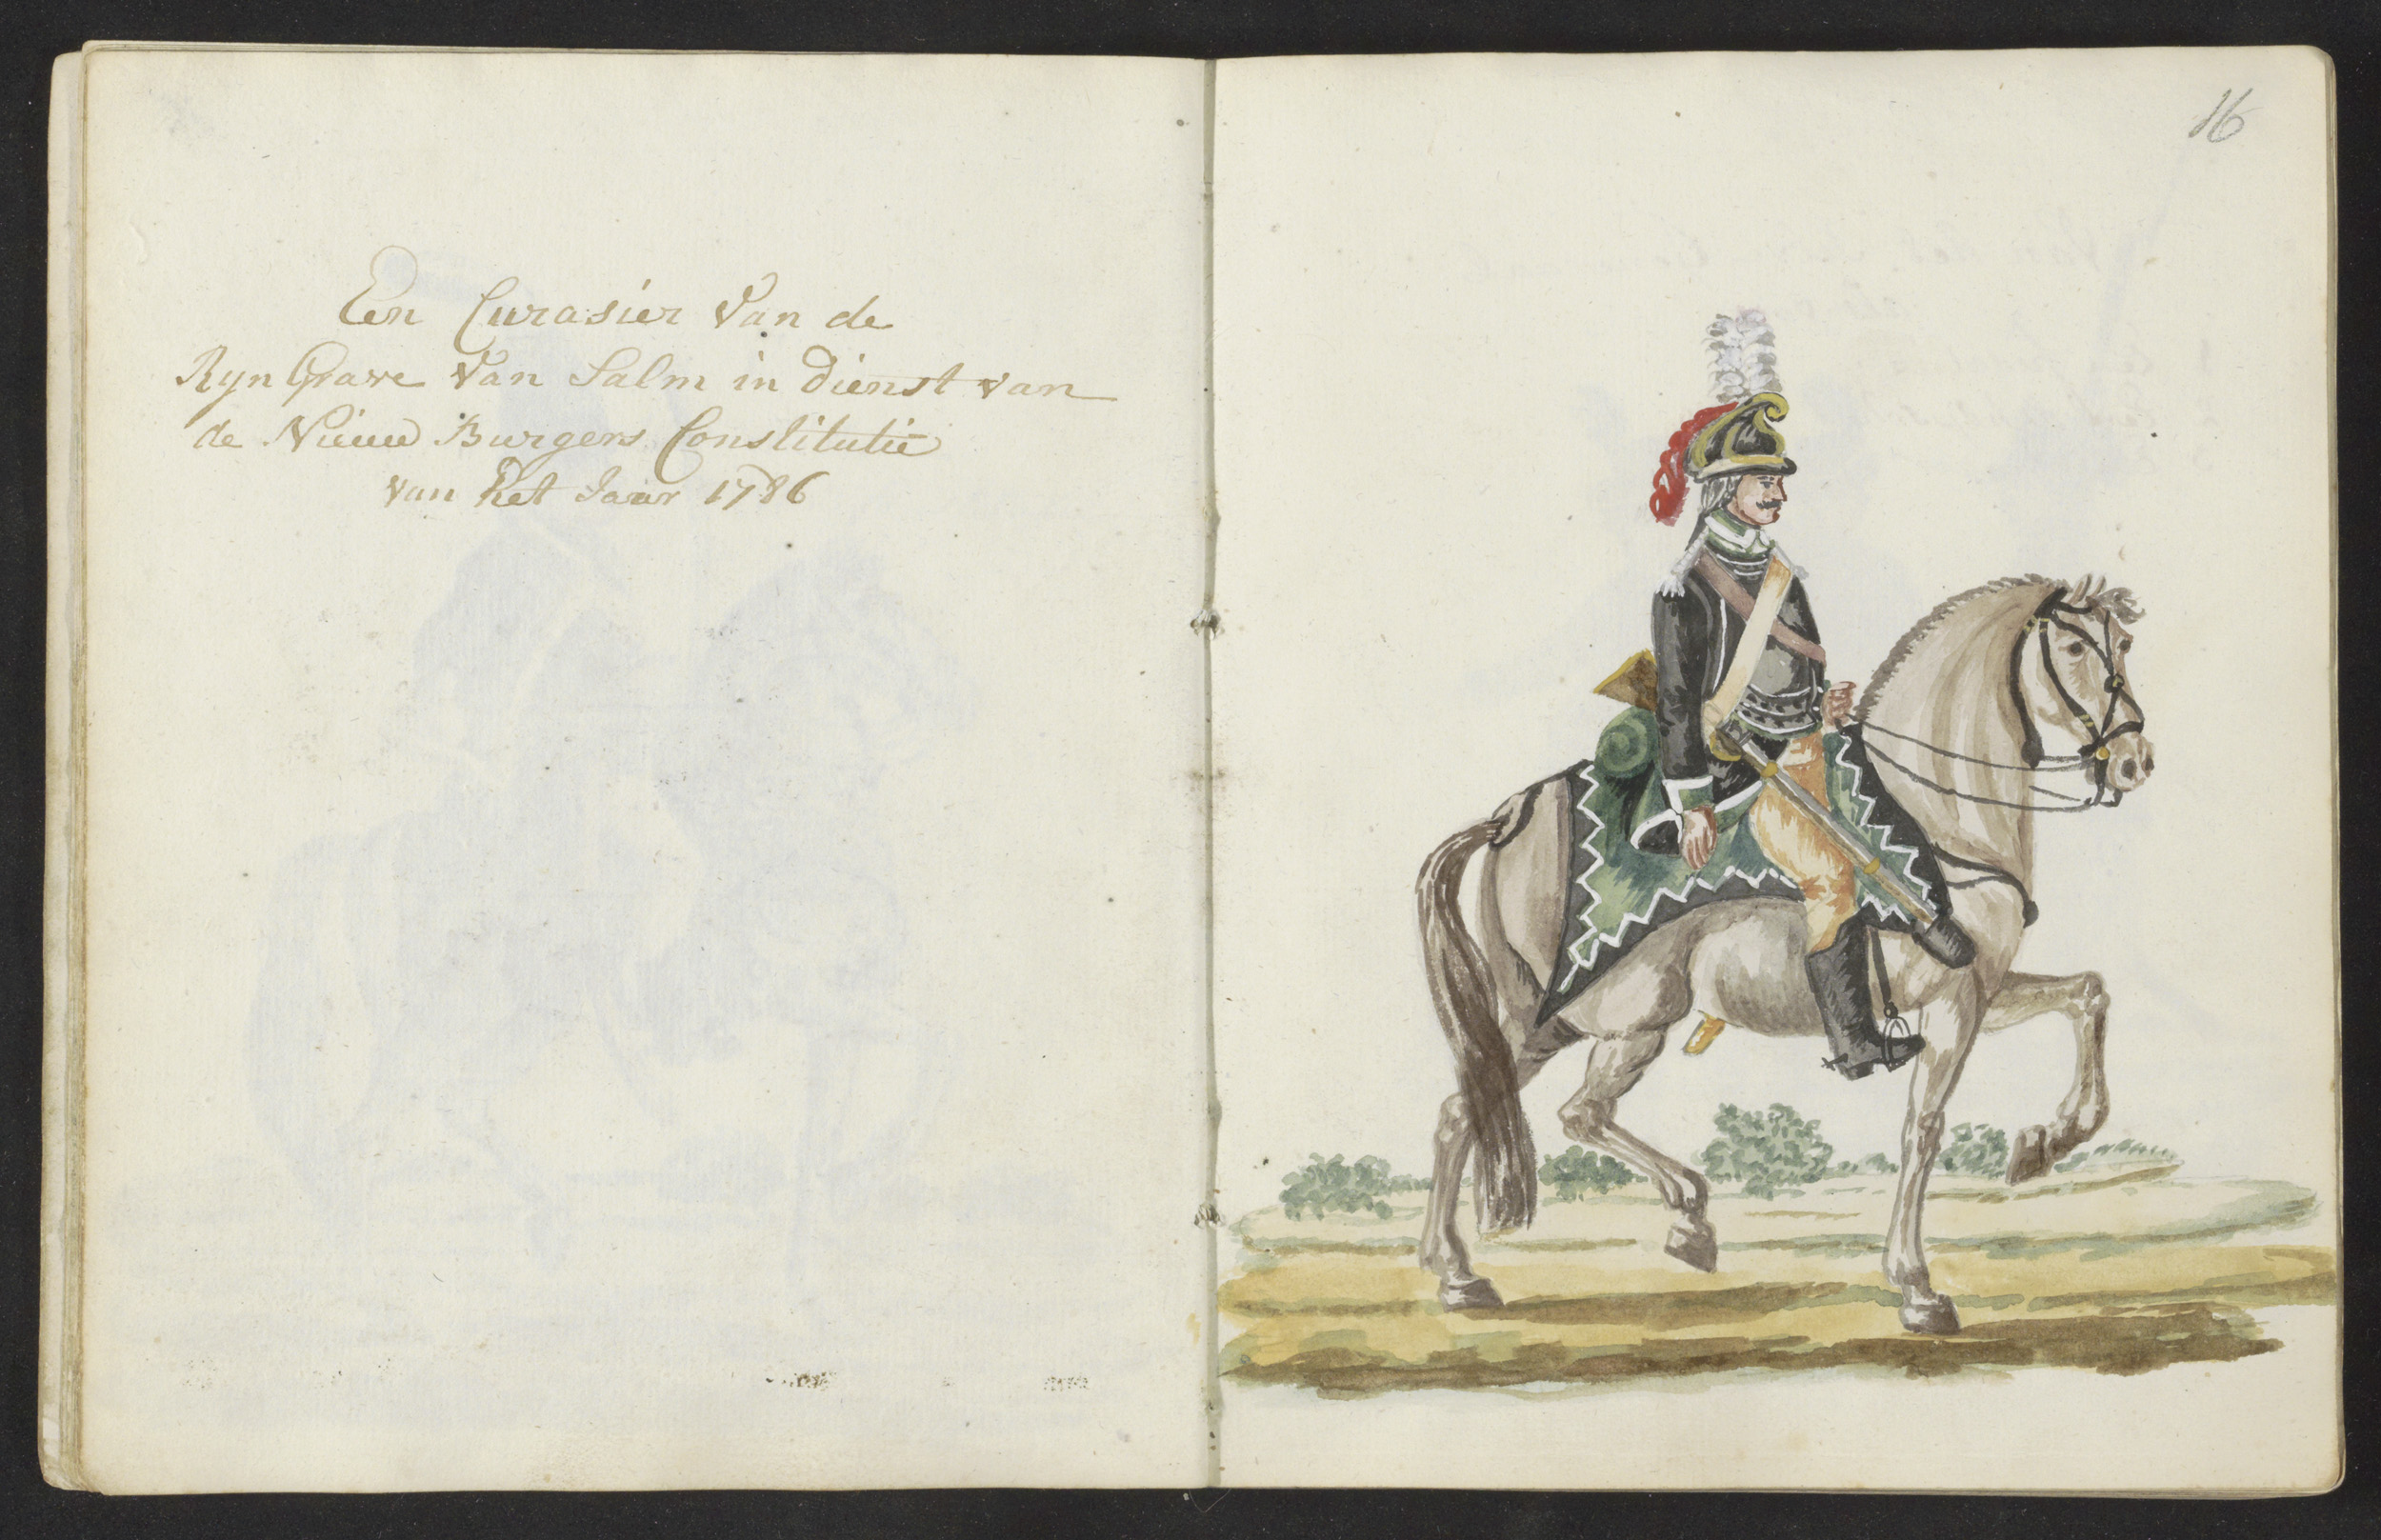 Een Curasier Van de
Ryn Grave Van Salm in Dienst van
de Nieuw Burgers Constitutie
van het Jaar 1786
16